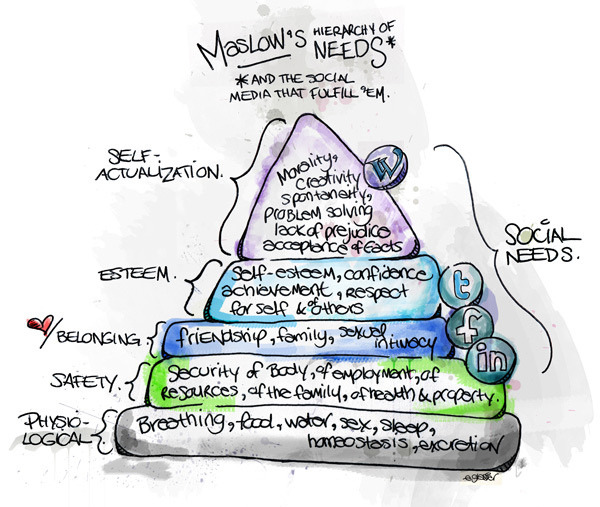 MASLOW'S HIERARCHY OF NEEDS*
* AND THE SOCIAL
MEDIA THAT FULFILL 'EM.
SELF-
ACTUALIZATION.
Morality,
Creativity
spontaneity,
problem solving
lack of prejudice
acceptance of facts
W
SOCIAL
NEEDS.
ESTEEM.
Self-esteem, confidence
achievement, respect
for self & of others
t
/BELONGING.
friendship, family, sexual
intimacy
f
in
SAFETY.
Security of Body, of employment, of
resources, of the family, of health & property.
PHYSIO-
LOGICAL
Breathing, food, water, sex, sleep,
homeostasis, excretion